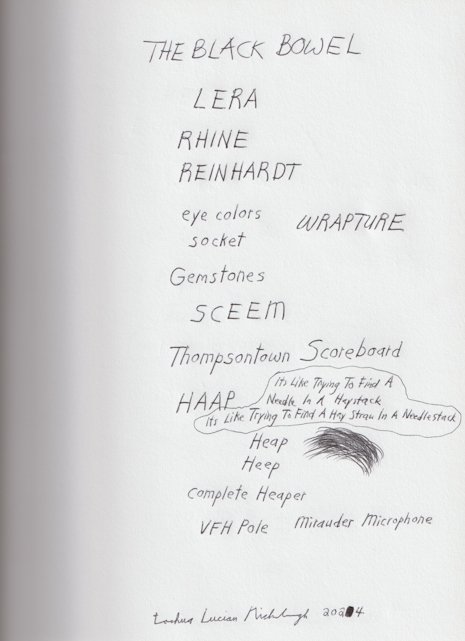 THE BLACK BOWEL
LERA
RHINE
REINHARDT
eye colors
WRAPTURE
socket
Gemstones
SCEEM
Thompsontown Scoreboard
Its Like Trying To Find A
Needle In A Haystack
HAAP
Its Like Trying To Find A Hay Straw In A Needlestack
Heap
Heep
Complete Heaper
VFH Pole
Mirauder Microphone
Lucian 2024